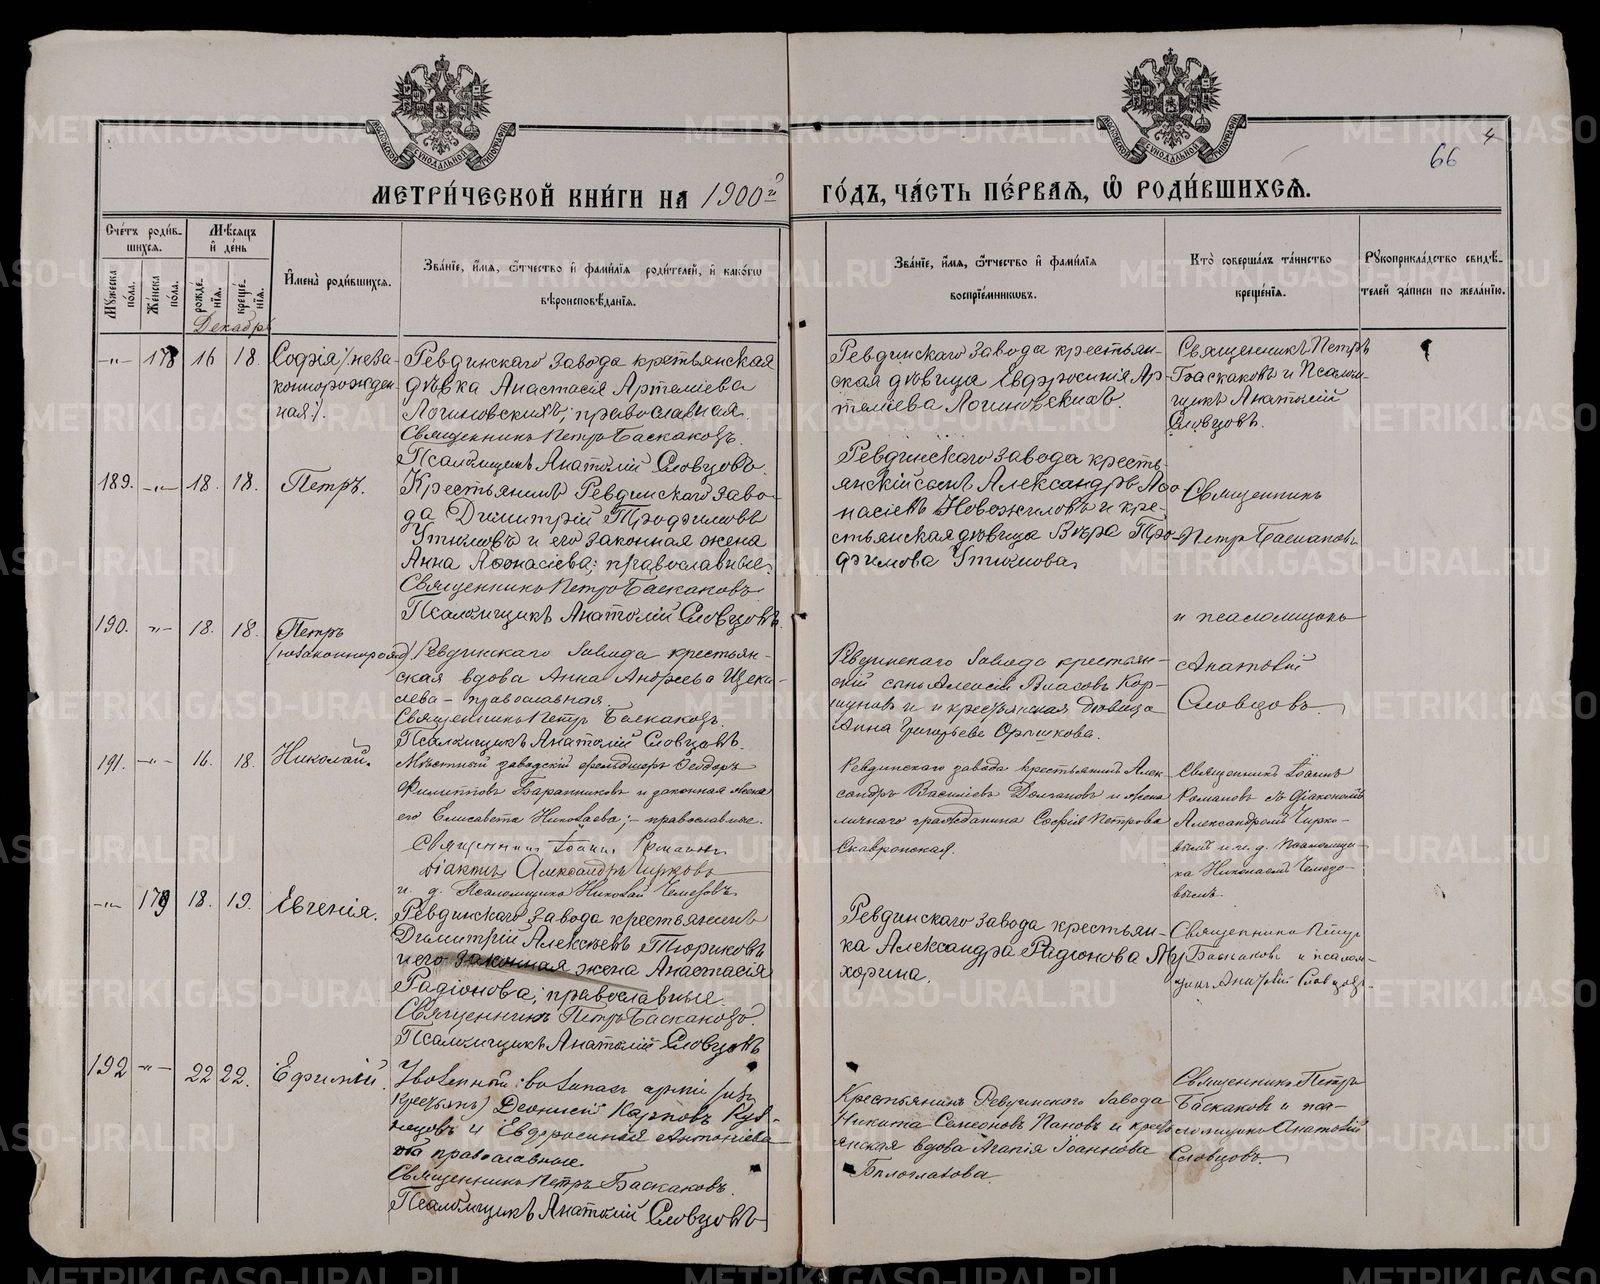 МЕТРИ́ЧЕСКОЙ КНИ́ГИ НА 1900й ГО́ДЪ, ЧА́СТЬ ПЕ́РВАЯ, Ѡ҆ РОДИ́ВШИХСЯ.
66
4
Сче́тъ роди́вшихся.
Мꙋжеска по́ла.
Же́нска по́ла.
Мѣ́сяцъ и҆ де́нь
рожде́нїя.
креще́нїя.
И҆мена̀ роди́вшихся.
Зва́нїе, и҆́мя, ѻ҆́тчество и҆ фами́лїя роди́телей, и҆ како́гѡ вѣроисповѣ́данїя.
Зва́нїе, и҆́мя, ѻ҆́тчество и҆ фами́лїя воспрїе́мникѡвъ.
Кто̀ соверша́лъ та́инство креще́нїя.
Рꙋкоприкла́дство свидѣ́телей за́писи по жела́нїю.
Декабрь
-„- 178 16 18. Софія /незаконнорожденная/.
Ревдинскаго завода крестьянская
дѣвка Анастасія Артеміева
Логиновскихъ; православная.
Священникъ Петръ Баскаковъ.
Псаломщикъ Анатолій Словцовъ.
Ревдинскаго завода крестьян-
ская дѣвица Евдросинія Ар-
теміева Логиновскихъ.
Священникъ Петръ
Баскаковъ и Псалом-
щикъ Анатолій
Словцовъ.
189. -„- 18. 18. Петръ.
Крестьянинъ Ревдинскаго заво-
да Димитрій Трофимовъ
Утюмовъ и его законная жена
Анна Аѳонасіева; православные.
Священникъ Петръ Баскаковъ.
Псаломщикъ Анатолій Словцовъ.
Ревдинскаго завода кресть-
янскій сынъ Александръ Аѳо-
насіевъ Новожиловъ и кре-
стьянская дѣвица Вѣра Тро-
фимова Утюмова.
Священникъ
Петръ Баскаковъ
и псаломщикъ
Анатолій
Словцовъ.
190. -„- 18. 18. Петръ
Ревдинскаго завода крестьян-
ская вдова Анна Андреева Щеко-
лева - православная.
Священникъ Петръ Баскаковъ.
Псаломщикъ Анатолій Словцовъ.
Ревдинскаго завода крестьян-
скій сынъ Алексій Власовъ Кор-
шуновъ и крестьянская дѣвица
Анна Григорьева Орѣшкова.
191. -„- 16. 18. Николай.
Мѣстный заводскій фельдшеръ Ѳеодоръ
Филипповъ Баранниковъ и законная жена
его Елисавета Николаева; - православные.
Священникъ Іоаннъ Романовъ
Діаконъ Александръ Чирковъ
и. д. Псаломщика Николай Чемезовъ
Ревдинскаго завода крестьянинъ Алек-
сандръ Василіевъ Долгановъ и жена
личнаго гражданина Софія Петрова
Скавронская.
Священникъ Іоаннъ
Романовъ съ діакономъ
Александромъ Чирко-
вымъ и и. д. псаломщи-
ка Николаемъ Чемезо-
вымъ.
-„- 179 18. 19. Евгенія.
Ревдинскаго завода крестьянинъ
Димитрій Алексѣевъ Тюриковъ
и его законная жена Анастасія
Радіонова; православные.
Священникъ Петръ Баскаковъ.
Псаломщикъ Анатолій Словцовъ
Ревдинскаго завода крестьян-
ка Александра Радіонова Му-
хорина.
Священникъ Петръ
Баскаковъ и псалом-
щикъ Анатолій Словцовъ.
192 -„- 22 22. Ефимій.
Уволенный въ запасъ арміи /изъ
крестьянъ/ Діонисій Карповъ Куз-
нецовъ и Евдросинія Антоніева
оба православные.
Священникъ Петръ Баскаковъ.
Псаломщикъ Анатолій Словцовъ
Крестьянинъ Ревдинскаго завода
Никита Семеоновъ Пановъ и кресть-
янская вдова Агапія Іоаннова
Бѣлоглазова.
Священникъ Петръ
Баскаковъ и пса-
ломщикъ Анатолій
Словцовъ.
METRIKI.GASO-URAL.RU